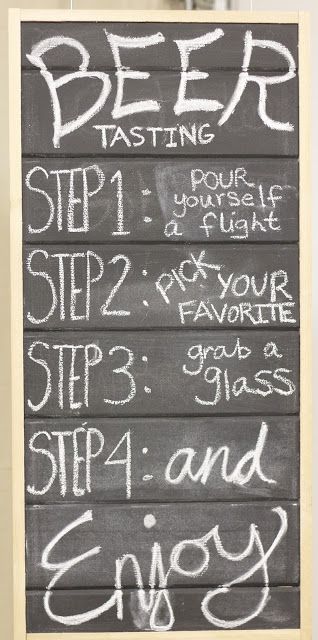 BEER
TASTING
STEP 1: POUR
yourself
a flight
STEP 2: PICK YOUR
FAVORITE
STEP 3: grab a
glass
STEP 4: and
Enjoy